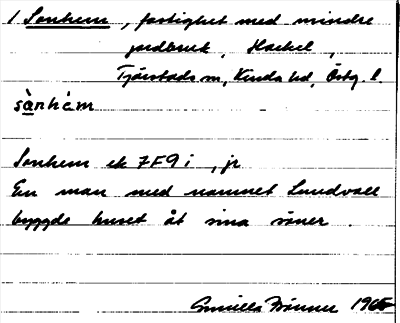 1 Sonhem, fastighet med mindre
jordbruk, Hackel,
Tjärstads sn, Kinda hd, Östg. l.
sὰnhèm
Sonhem ek 7F9i, jr
En man med namnet Lundvall
byggde huset åt sina söner.
Gunilla Brönner 1965